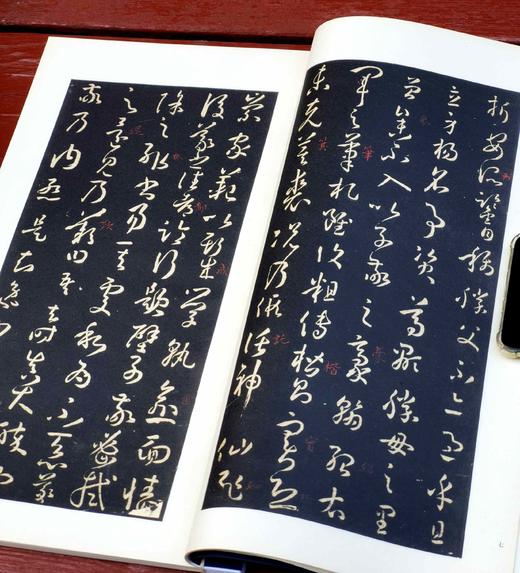 折安所鑒自稱勝父不亦過乎且
立身揚名事資尊顯勝母之里
曾參不入以子敬之豪翰紹右
軍之筆札雖復粗傳楷則實恐
未克箕裘況乃假託神仙恥
崇家範以斯成學孰愈面牆
後羲之往都臨行題壁子敬密拭
除之輒書易其處私為不惡羲
之還見乃歎曰吾去時真大醉也
敬乃內慙是知逸
七